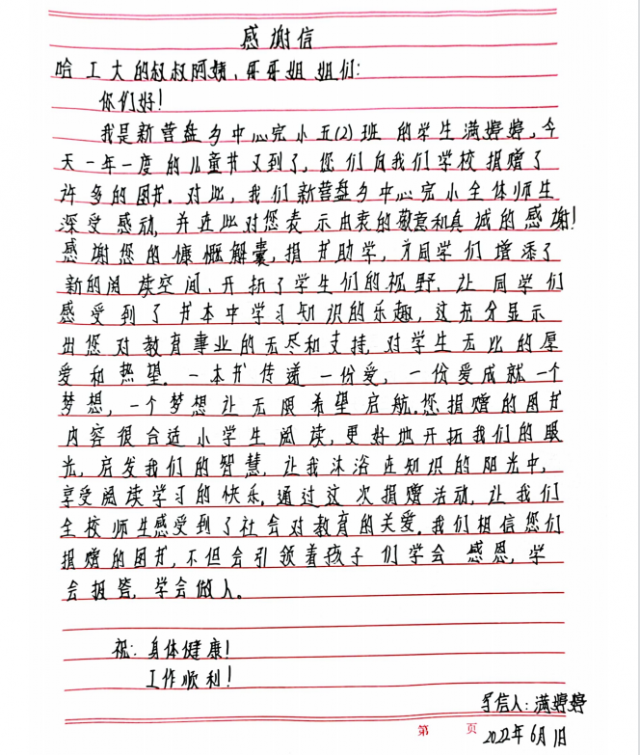 感谢信
哈工大的叔叔阿姨，哥哥姐姐们：
你们好！
我是新营盘乡中心完小五(2)班的学生满婷婷，今
天一年一度的儿童节又到了，您们向我们学校捐赠了
许多的图书。对此，我们新营盘乡中心完小全体师生
深受感动，并在此对您表示由衷的敬意和真诚的感谢！
感谢您的慷慨解囊，捐书助学，为同学们增添了
新的阅读空间，开拓了学生们的视野，让同学们
感受到了书本中学习知识的乐趣，这充分显示
出您对教育事业的无尽和支持，对学生无比的厚
爱和热望。一本书传递一份爱，一份爱成就一个
梦想，一个梦想让无限希望启航。您捐赠的图书
内容很合适小学生阅读，更好地开拓我们的眼
光，启发我们的智慧，让我沐浴在知识的阳光中，
享受阅读学习的快乐。通过这次捐赠活动，让我们
全校师生感受到了社会对教育的关爱。我们相信您们
捐赠的图书，不但会引领着孩子们学会感恩，学
会报答，学会做人。
祝：身体健康！
工作顺利！
写信人：满婷婷
第 页 2022年6月1日